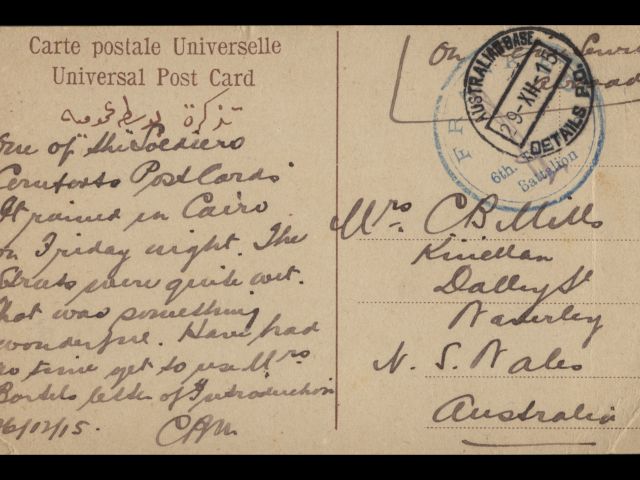 Carte postale Universelle
Universal Post Card
تذكرة بوسطه عمومية
One of the Soldiers
Comforts Post Cards
It rained in Cairo
on Friday night. The
Streets were quite wet.
that was something
wonderful. Have had
no time yet to use Mrs
letter of Introduction
26/12/15. CBM
On Service
AUSTRALIAN BASE
29-XII-15
DETAILS P.O.
FRANK
6th.
Battalion
Mrs CB Mills
Kinellan
Dalley St
Waverley
N. S. Wales
Australia